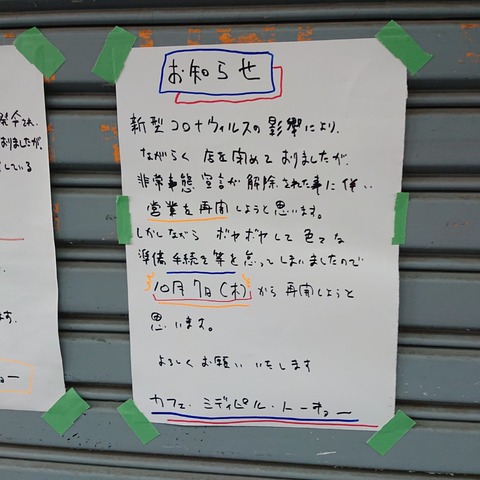 発令され
おりましたが、
している
ます。
ョー
お知らせ
新型コロナウィルスの影響により、
ながらく店を閉めておりましたが、
非常事態宣言が解除された事に伴い
営業を再開しようと思います。
しかしながら ボヤボヤして色々な
準備手続き等を怠ってしまいましたので
10月7日(木)から再開しようと
思います。
よろしくお願いいたします
カフェ・ミディピル・トーキョー